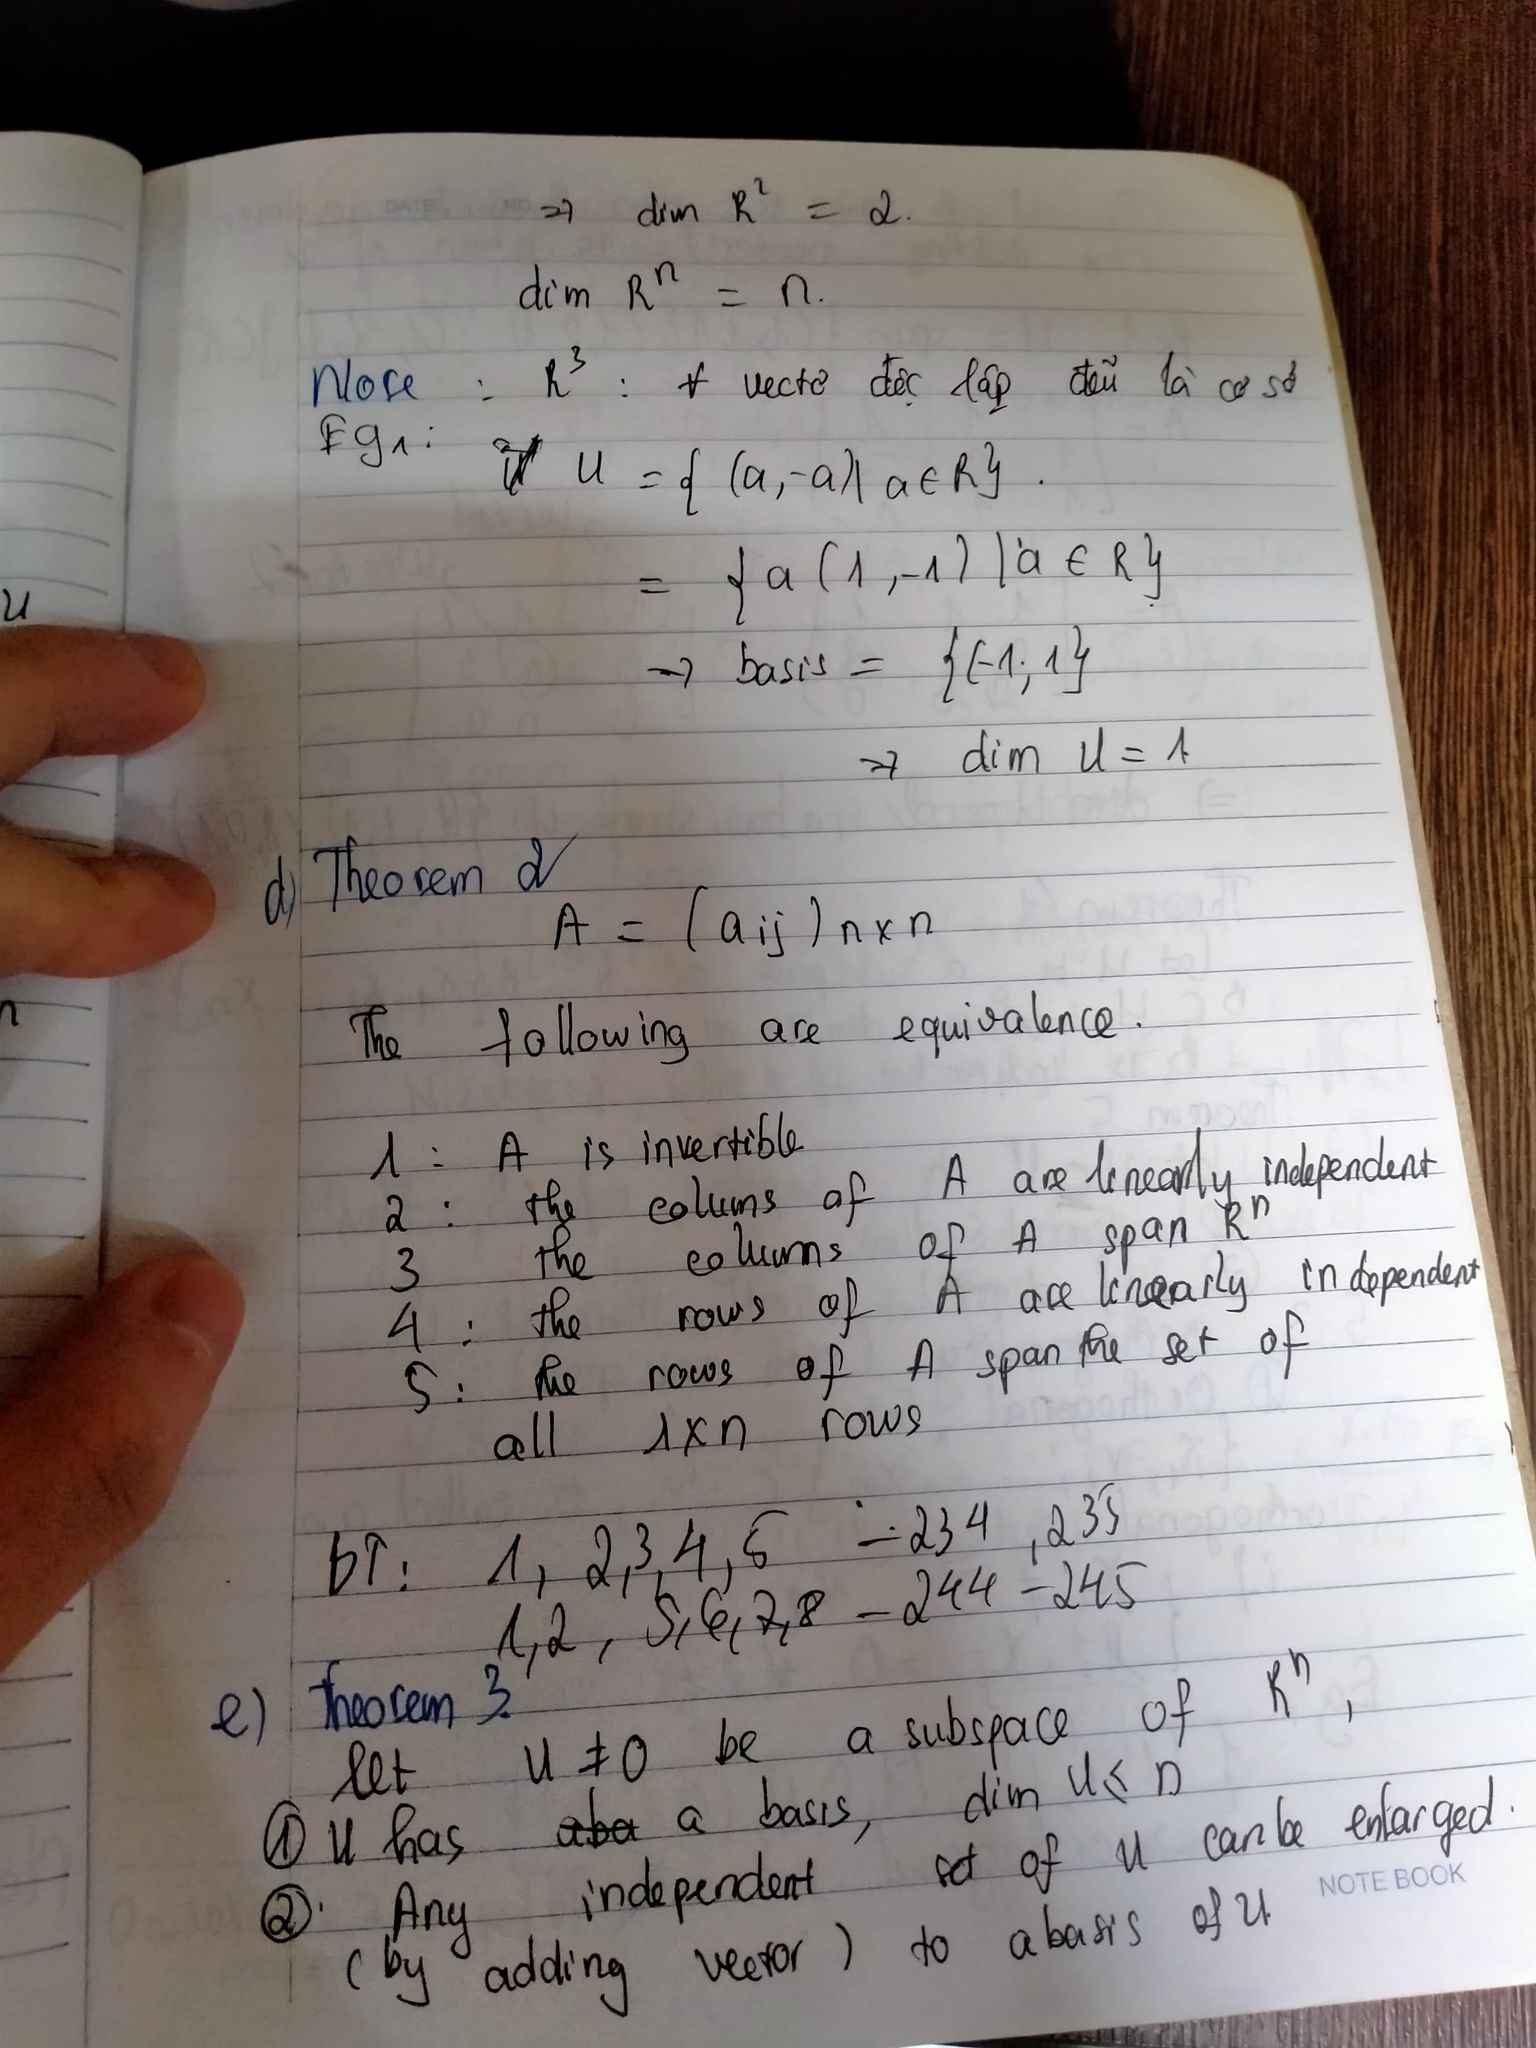 ⇒ dim R² = 2.
dim Rⁿ = n.
Note : R³ : ∀ vectơ độc lập đều là cơ sở
Eg1 : U = { (a,-a) | a ∈ R} .
= { a (1,-1) | a ∈ R}
→ basis = {(-1; 1}
⇒ dim U = 1
d) Theorem 2
A = (aij) n x n
The following are equivalence.
1 : A is invertible
2 : the colums of A are linearly independent
3 the colums of A span Rⁿ
4 : the rows of A are linearly independent
5 : the rows of A span the set of
all 1xn rows
bT: 1, 2,3,4,5 - 234 , 235
1,2 , 5,6,7,8 - 244 - 245
e) Theorem 3
let U ≠ 0 be a subspace of Rⁿ,
① U has a basis, dim U ≤ n
② Any independent set of U can be enlarged.
(by adding vector) to a basis of U
NOTE BOOK